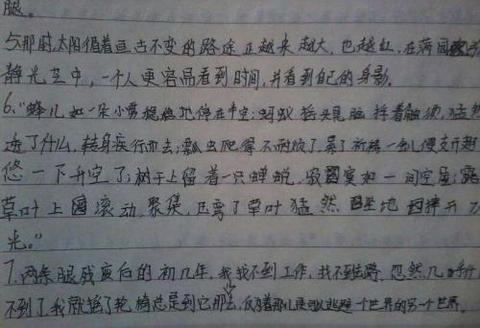 腿。
5、那时,太阳循着亘古不变的路途正越来越大,也越红,在满园
静光芒中,一个人更容易看到时间,并看到自己的身影。
6."蜂儿如一朵小雾稳稳地停在半空;蚂蚁摇头晃脑捋着触须,猛然
透了什么,转身疾行而去;瓢虫爬得不耐烦了,累了祈祷一回便支开翅
悠一下升空了;树干上留着一只蝉蜕,寂寞如一间空屋;露
草叶上滚动 聚集,压弯了草叶猛然坠地摔开万
光。"
7.两条腿残废后的初几年,我找不到工作,找不到去路,忽然几乎
不到了,我就摇了轮椅总是到它那去,仅为着那儿是可以逃避一个世界的另一个世界。